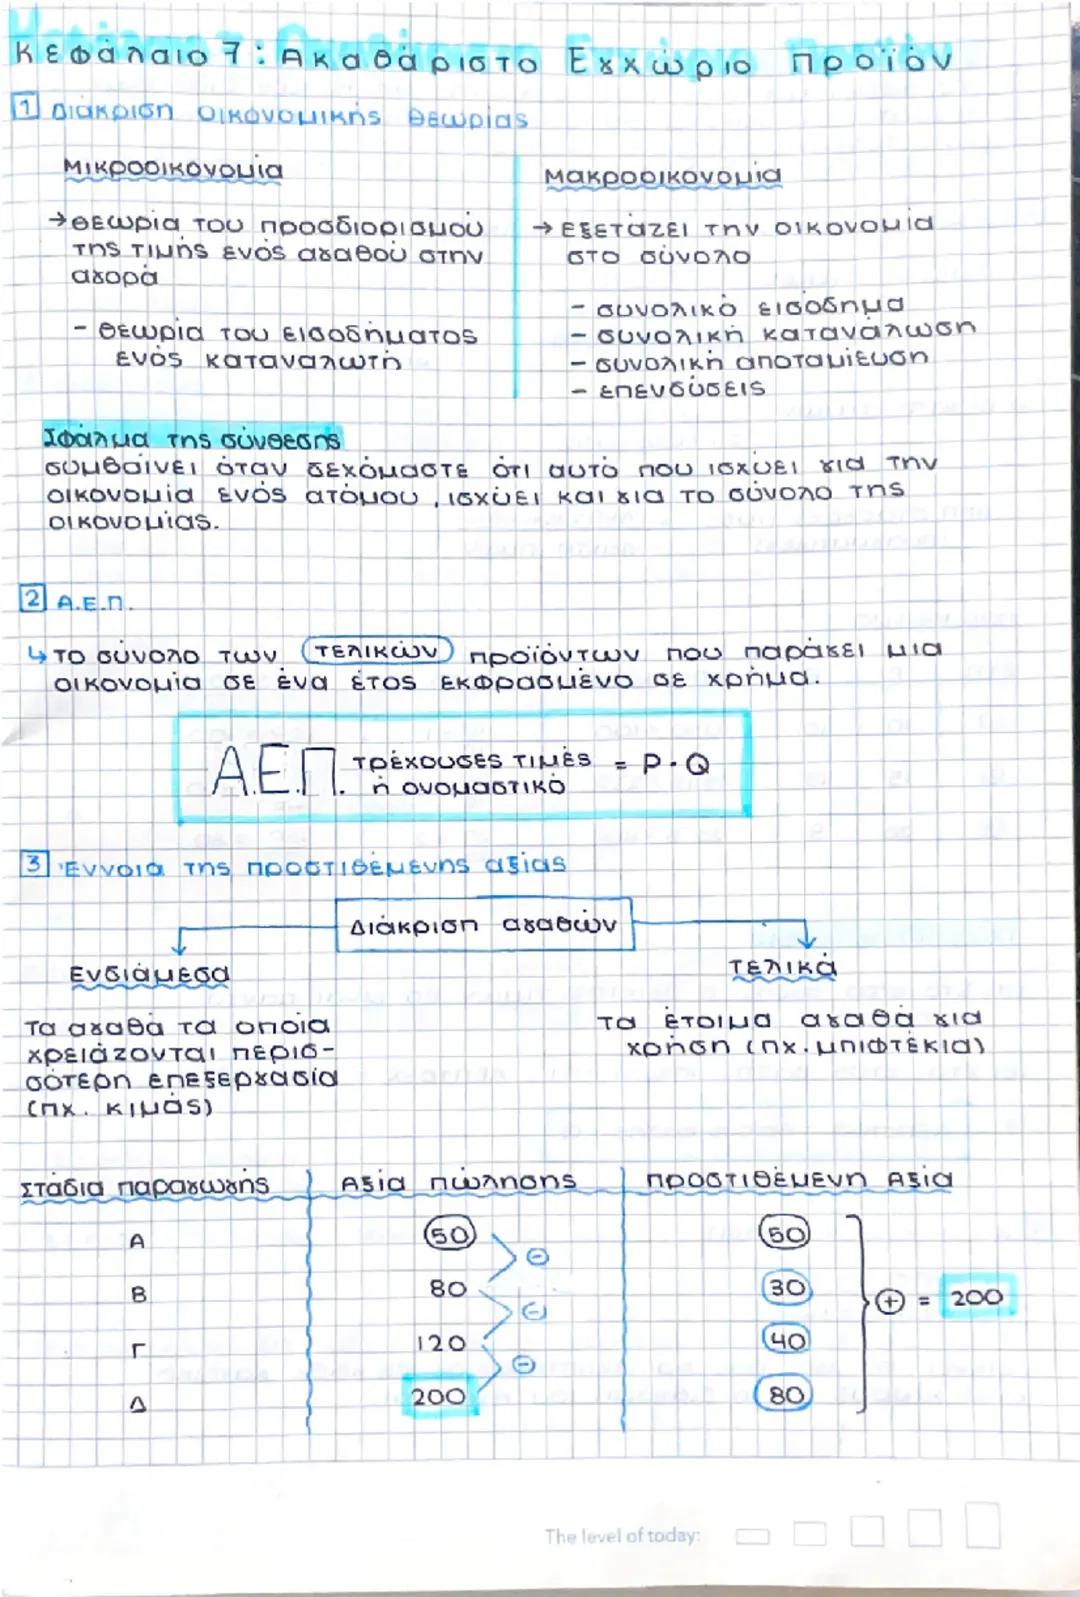 Κεφάλαιο 7: Ακαθάριστο Εγχώριο Προϊόν
1 Διάκριση οικονομικής θεωρίας
Μικροοικονομία
→ θεωρία του προσδιορισμού
της τιμής ενός αγαθού στην
αγορά
- θεωρία του εισοδήματος
ενός καταναλωτή
Μακροοικονομία
→ εξετάζει την οικονομία
στο σύνολο
- συνολικό εισόδημα
- συνολική κατανάλωση
- συνολική αποταμίευση
- επενδύσεις
Σφάλμα της σύνθεσης
συμβαίνει όταν δεχόμαστε ότι αυτό που ισχύει για την
οικονομία ενός ατόμου, ισχύει και για το σύνολο της
οικονομίας.
2 Α.Ε.Π.
↳ το σύνολο των τελικών προϊόντων που παράγει μια
οικονομία σε ένα έτος εκφρασμένο σε χρήμα.
Α.Ε.Π. τρέχουσες τιμές = P·Q
ή ονομαστικό
3 Έννοια της προστιθέμενης αξίας
Διάκριση αγαθών
Ενδιάμεσα
Τα αγαθά τα οποία
χρειάζονται περισ-
σότερη επεξεργασία
(πχ. κιμάς)
Τελικά
Τα έτοιμα αγαθά για
χρήση (πχ. μπιφτέκια)
Στάδια παραγωγής Αξία πώλησης Προστιθέμενη Αξία
Α 50 50
⊖
Β 80 30
⊕ = 200
⊖
Γ 120 40
⊖
Δ 200 80
The level of today: